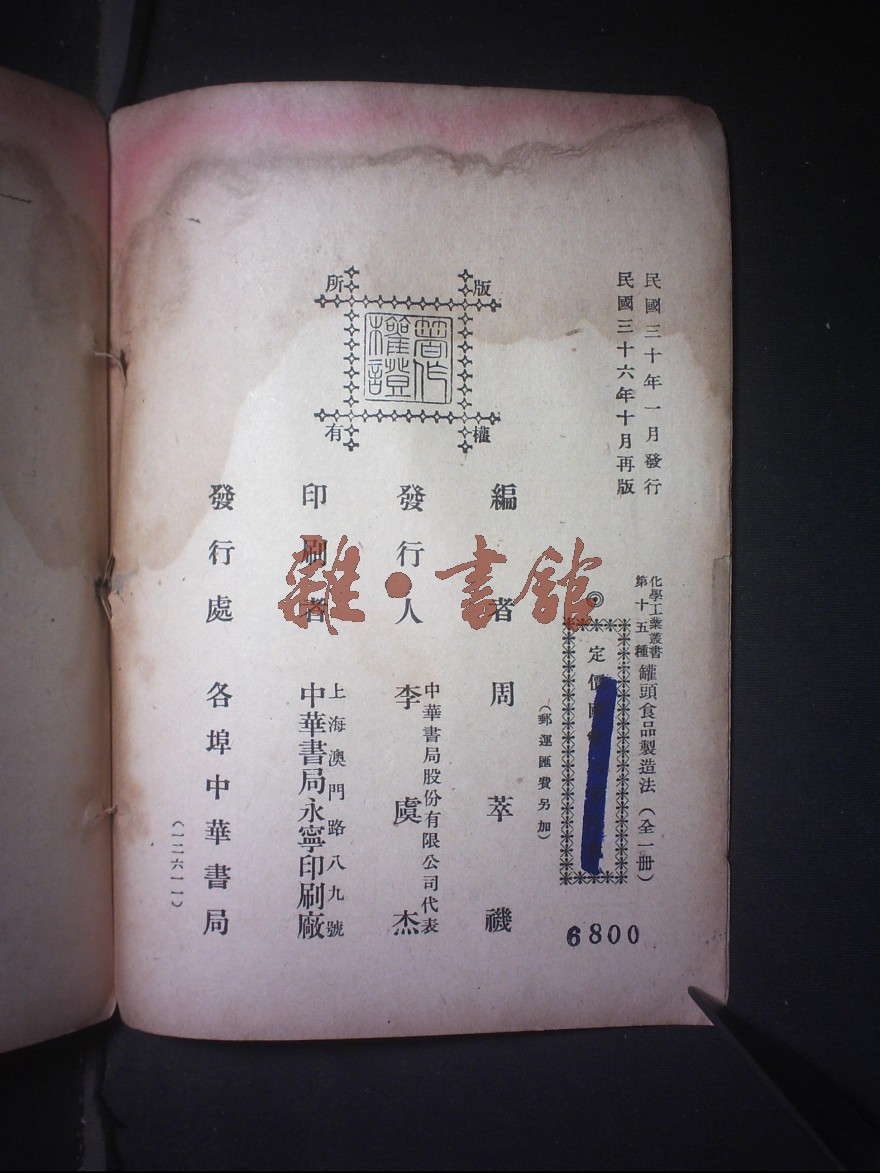 民國三十年一月發行
民國三十六年十月再版
化學工業叢書
第十五種
罐頭食品製造法（全一冊）
◎
定價國
（郵運匯費另加）
6800
版權所有
著作權證
編者 周萃禨
發行人 李虞杰
中華書局股份有限公司代表
印刷者
上海澳門路八九號
中華書局永寧印刷廠
發行處 各埠中華書局
（一二六一一）
雜·書館